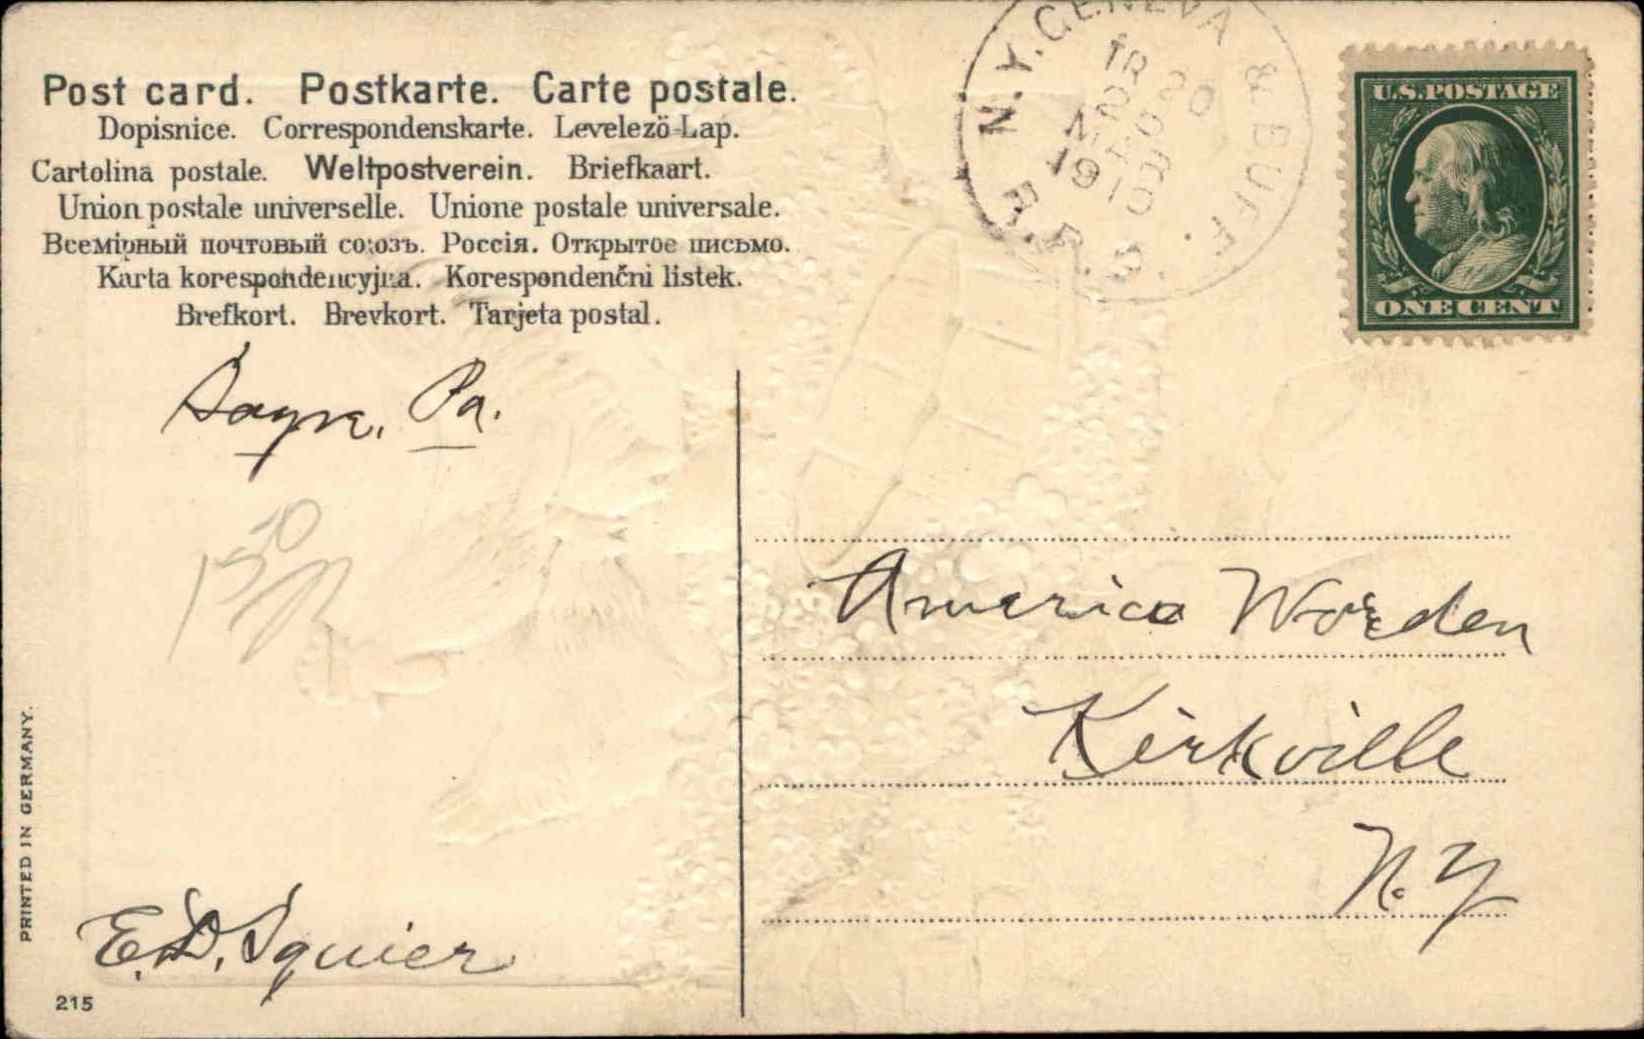 Post card. Postkarte. Carte postale.
Dopisnice. Correspondenskarte. Levelezö-Lap.
Cartolina postale. Weltpostverein. Briefkaart.
Union postale universelle. Unione postale universale.
Всемірный почтовый союзъ. Россія. Открытое письмо.
Karta korespondencyjna. Korespondenčni listek.
Brefkort. Brevkort. Tarjeta postal.
N.Y. GENEVA & BUFF.
TR 20
1910
R.P.O.
U.S. POSTAGE
ONE CENT
Sayre, Pa.
America Worden
Kirkville
N.Y
E.D. Squier
PRINTED IN GERMANY.
215